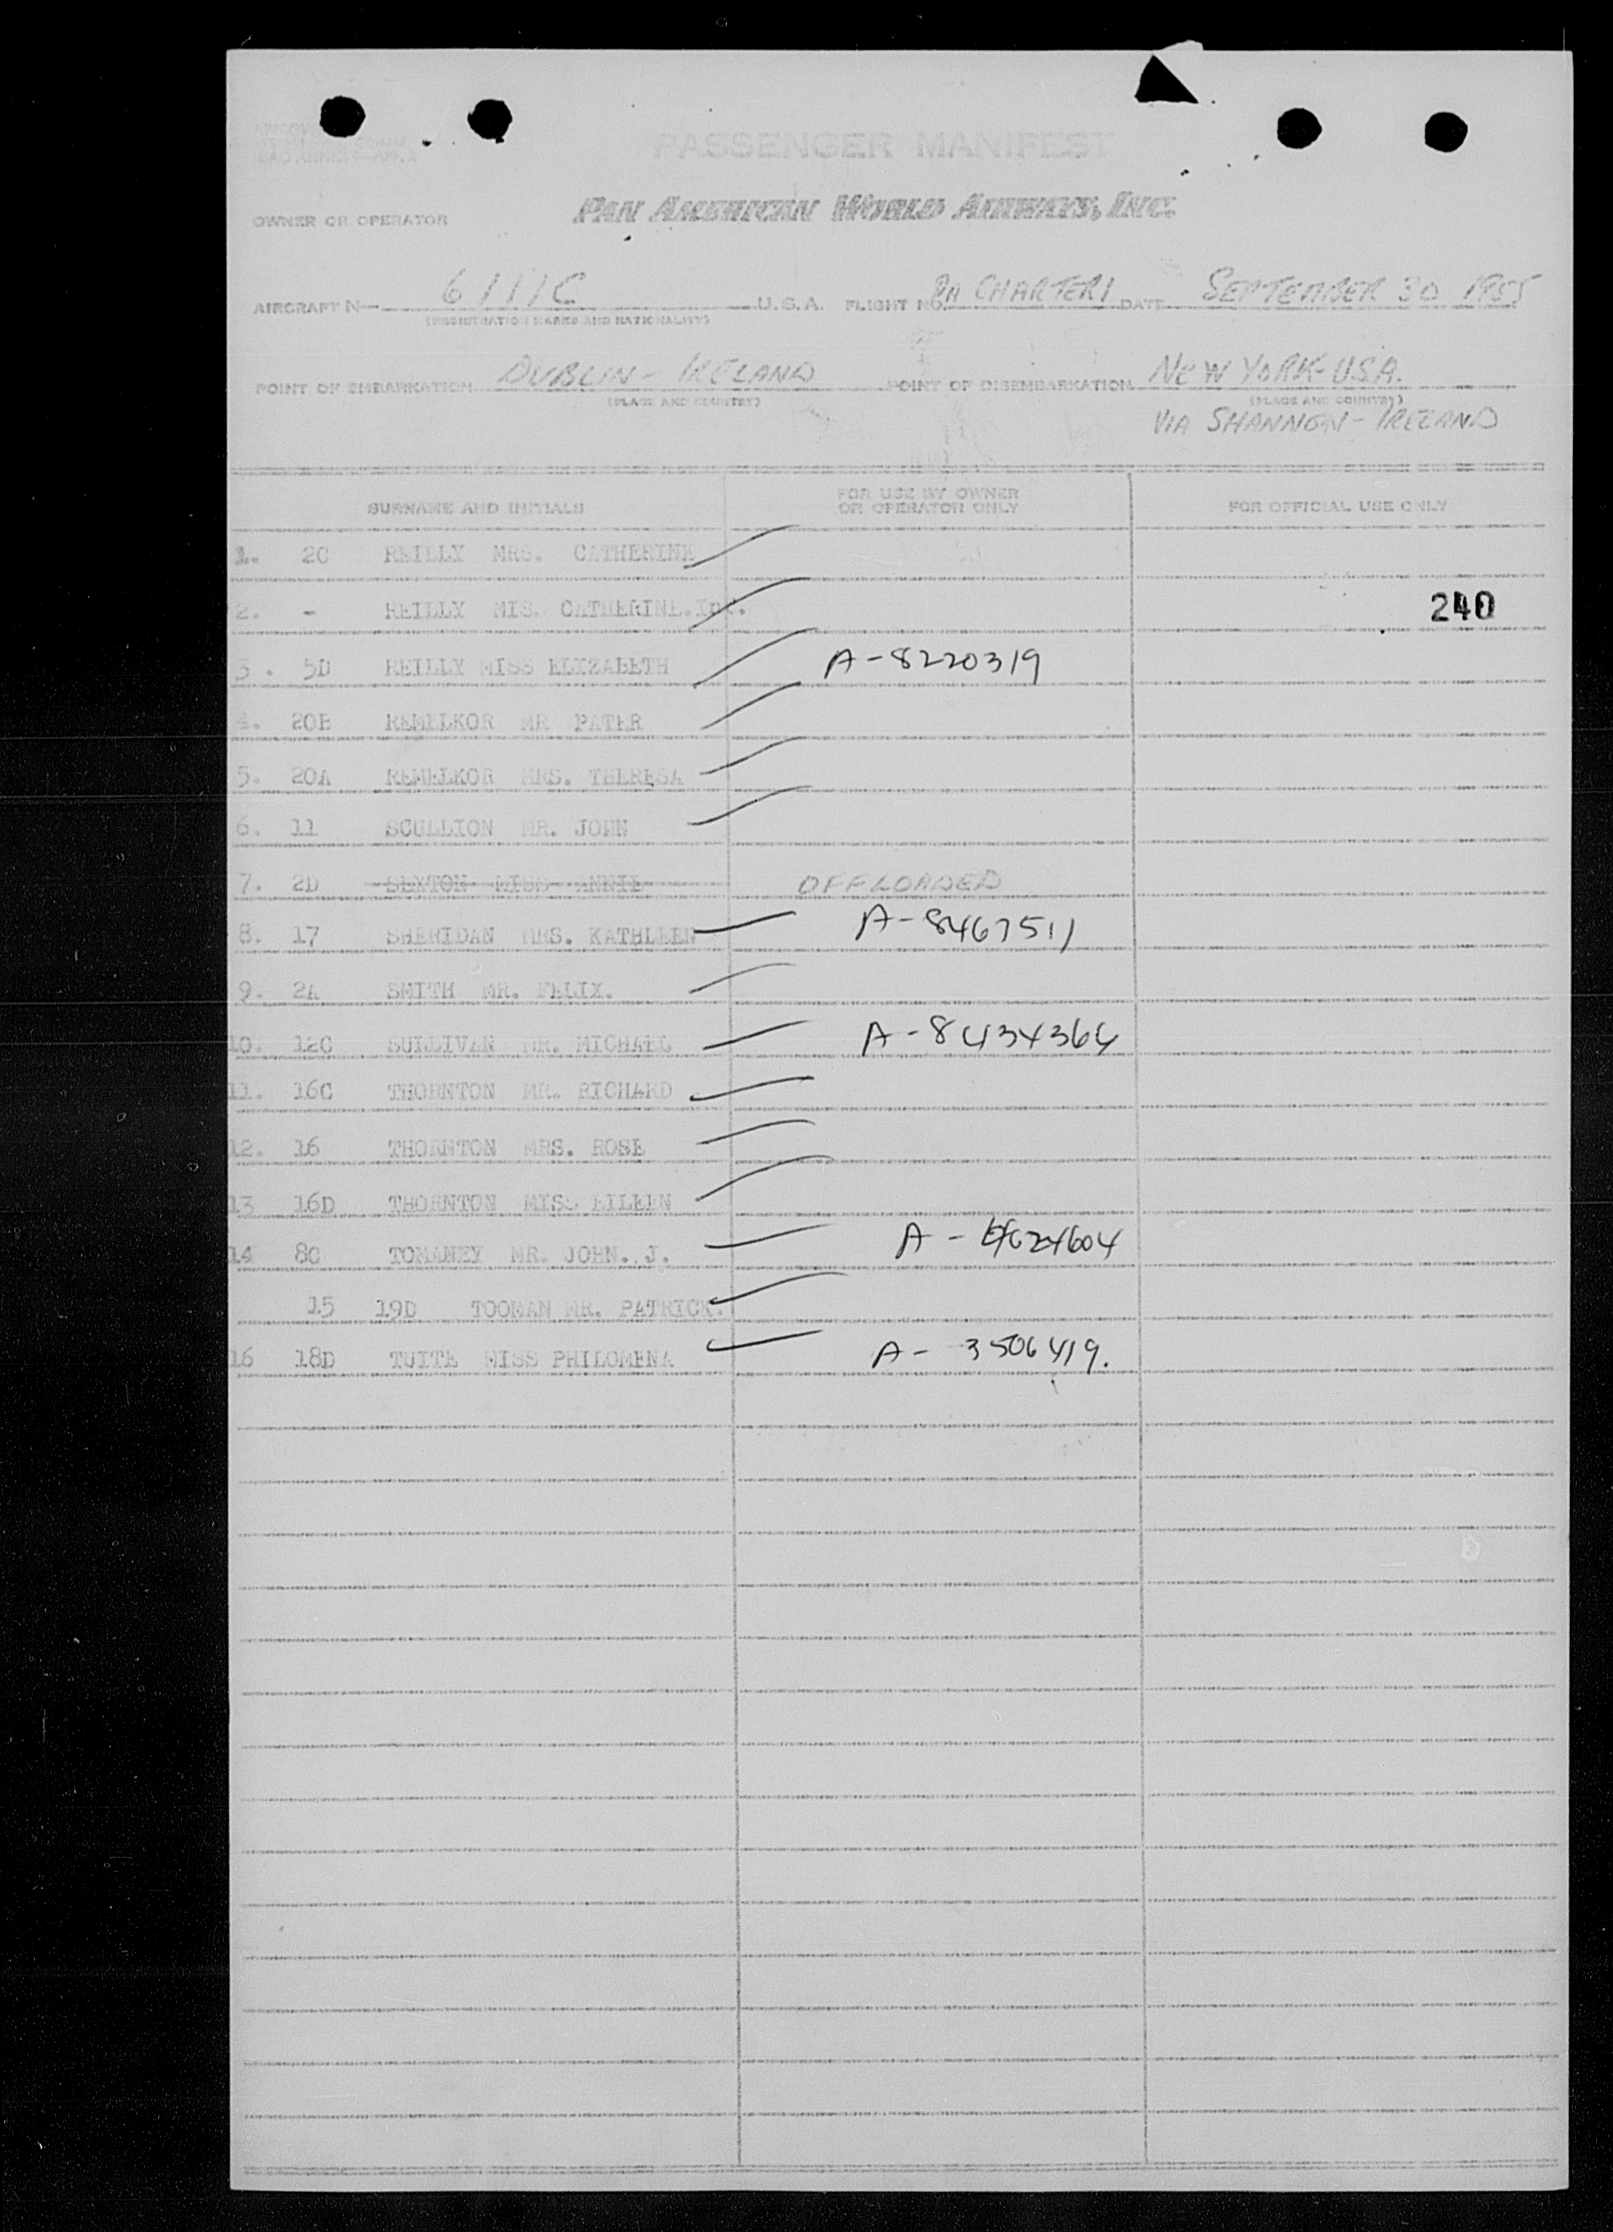 PASSENGER MANIFEST
OWNER OR OPERATOR PAN AMERICAN WORLD AIRWAYS, INC.
AIRCRAFT N— 6111C U.S.A. FLIGHT NO. PA CHARTER 1 DATE SEPTEMBER 30 1955
(REGISTRATION MARKS AND NATIONALITY)
POINT OF EMBARKATION DUBLIN - IRELAND POINT OF DISEMBARKATION NEW YORK - U.S.A.
(PLACE AND COUNTRY) (PLACE AND COUNTRY)
VIA SHANNON - IRELAND
SURNAME AND INITIALS FOR USE BY OWNER OR OPERATOR ONLY FOR OFFICIAL USE ONLY
1. 2C REILLY MRS. CATHERINE
2. - REILLY MIS. CATHERINE. Inf. 240
3. 5D REILLY MISS ELIZABETH A-8220319
4. 20B REMELKOR MR PATER
5. 20A REMELKOR MRS. THERESA
6. 11 SCULLION MR. JOHN
7. 2D SEXTON MISS ANNIE OFFLOADED
8. 17 SHERIDAN MRS. KATHLEEN A-8467511
9. 2A SMITH MR. FELIX.
10. 12C SULLIVAN MR. MICHAEL A-8434364
11. 16C THORNTON MR. RICHARD
12. 16 THORNTON MRS. ROSE
13 16D THORNTON MISS EILEEN
14 8C TOMANEY MR. JOHN. J. A-
15 19D TOOMAN MR. PATRICK.
16 18D TUITE MISS PHILOMENA A- 3506419.